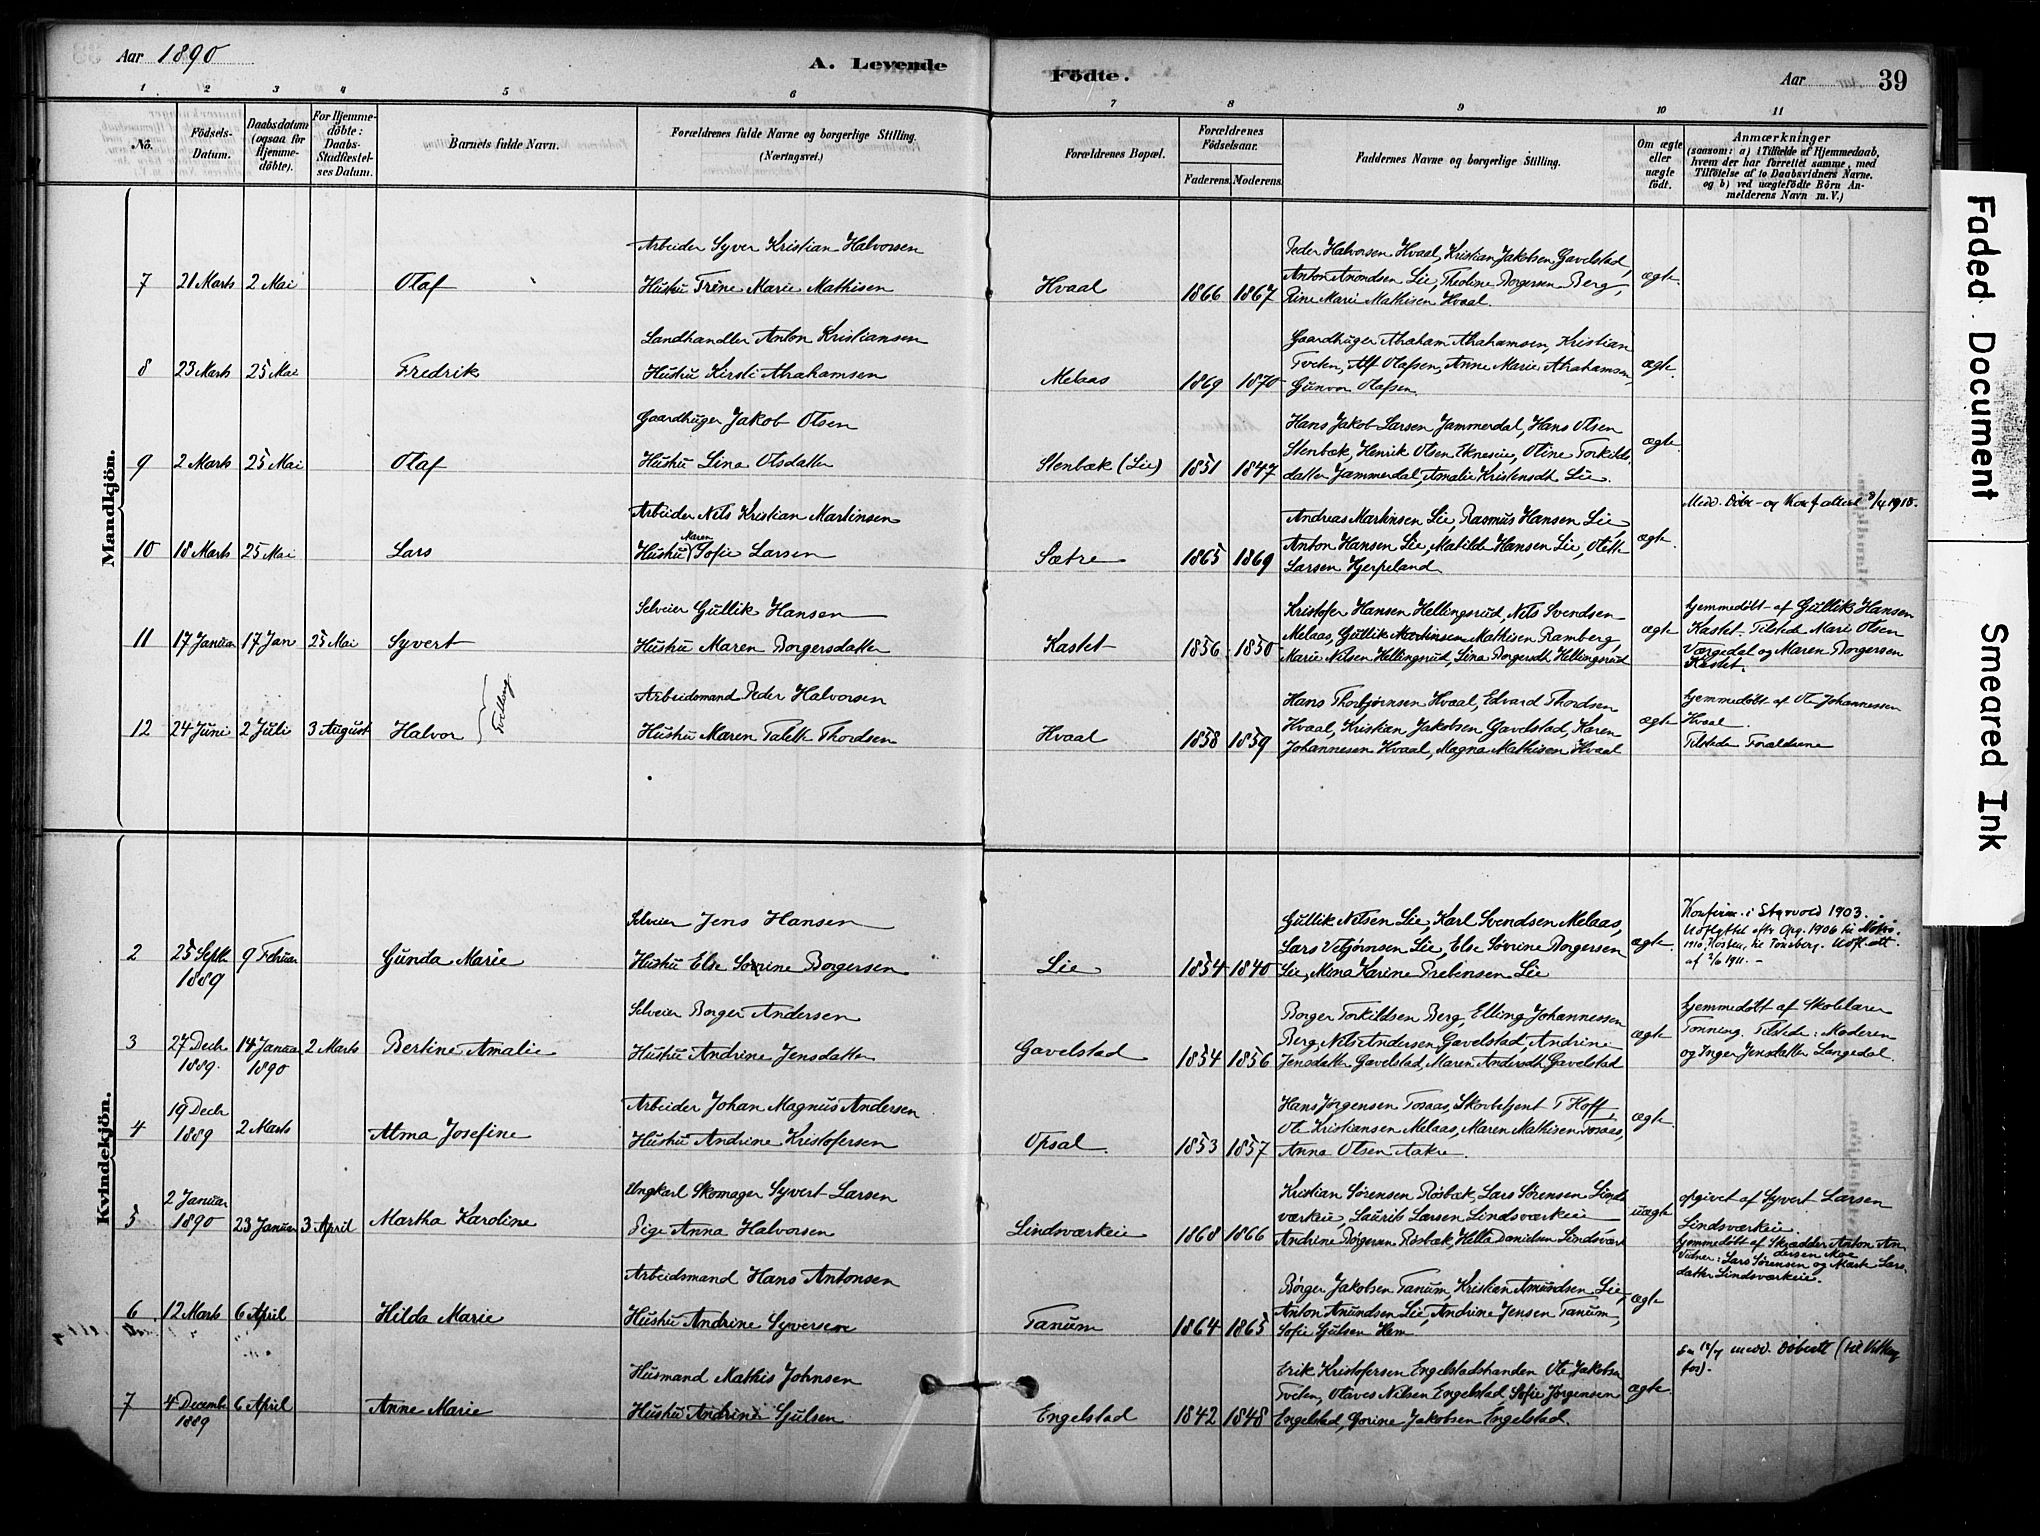 Aar 1890
A. Levende
Födte.
Aar
39
1 2 3 4 5 6 7 8 9 10 11
No.
Födsels-Datum.
Daabsdatum (ogsaa for Hjemme-döbte).
For Hjemme-döbte: Daabs-Stadfæstel-ses Datum.
Barnets fulde Navn.
Forældrenes fulde Navne og borgerlige Stilling.
(Næringsvei.)
Forældrenes Bopæl.
Forældrenes Födselsaar.
Faderens. Moderens.
Faddernes Navne og borgerlige Stilling.
Om ægte eller uægte födt.
Anmærkninger
(saasom: a) i Tilfælde af Hjemmedaab, hvem der har forrettet samme, med Tilföielse af to Daabsvidners Navne. og b) ved uægtefödte Börn An-melderens Navn m. V.)
Mandkjön.
Arbeider Syver Kristian Halvorsen
7 21 Marts 2 Mai Olaf Hustru Trine Marie Mathisen Hvaal 1866 1867
Peder Halvorsen Hvaal, Kristian Jakobsen Gavelstad,
Anton Amondsen Lie, Theoline Borgersen Berg,
Rine Marie Mathisen Hvaal.
ægte
Landhandler Anton Kristiansen
8 23 Marts 25 Mai Fredrik Hustru Kirsti Abrahamsen Melaas 1869 1870
Gaardbruger Abraham Abrahamsen, Kristian
Tveten, Alf Olafsen, Anne Marie Abrahamsen,
Gunvor Olafsen.
ægte.
Gaardbruger Jakob Olsen
9 2 Marts 25 Mai Olaf Hustru Lina Olsdatter Stenbæk (Lie) 1851 1847
Hans Jakob Larsen Jammerdal, Hans Olsen
Stenbæk, Henrik Olsen Ekneseie, Oline Torkilds-
datter Jammerdal, Amalie Kristensdt Lie.
ægte.
Arbeider Nils Kristian Martinsen
10 18 Marts 25 Mai Lars Hustru Maren Sofie Larsen Sætre 1865 1869
Andreas Martinsen Lie, Rasmus Hansen Lie,
Anton Hansen Lie, Matilde Hansen Lie, Olette
Larsen Hjerpeland
ægte.
Medd. Döbe- og Konf attest 8/4 1918.
Selveier Gullik Hansen
11 17 Januar 17 Jan 25 Mai Syvert Hustru Maren Borgersdatter Kastet 1856 1850
Kristofer Hansen Hellingsrud, Nils Svendsen
Melaas, Gullik Martinsen Mathisen Ramberg,
Marie Nilsen Hellingsrud, Lina Borgersdt Hellingsrud
ægte
hjemmedöbt af Gullik Hansen
Kastet. Tilstede Mari Olsen
Værgedal og Maren Borgersen
Kastet.
Arbeidsmand Peder Halvorsen
12 24 Juni 2 Juli 3 August Halvor Tvilling. Hustru Maren Talette Thordsen Hvaal 1858 1859
Hans Thorbjørnsen Hvaal, Edvard Thordsen
Hvaal, Kristian Jakobsen Gavelstad, Karen
Johannesen Hvaal, Magna Mathisen Hvaal
ægte
hjemmedöbt af Ole Johannessen
Hvaal.
Tilstede Forældrene
Kvindekjön.
Selveier Jens Hansen
2 25 Septb 1889 9 Februar Gunda Marie Hustru Else Sövrine Borgersen Lie 1854 1840
Gullik Nilsen Lie, Karl Svendsen Melaas,
Lars Vetjönsen Lie, Else Sövrine Borgersen
Lie, Mena Karine Prebensen Lie
ægte.
Konfirm. i Styrvold 1903.
Udflyttet efter Opg. 1906 til Notrø.
1910, Høsten, til Tönsberg. Udfl.att
af 2/6 1911.-
Selveier Borger Andersen
3 27 Decb 1889. 14 Januar 1890 2 Marts Bertine Amalie Hustru Andrine Jensdatter Gavelstad 1854 1856
Borger Torkildsen Berg, Elling Johannessen
Berg, Nils Andersen Gavelstad, Andrine
Jensdatter Gavelstad, Maren Andersdt Gavelstad
ægte
hjemmedöbt af Skolelærer
Tonning. Tilstede: Moderen
og Inger Jensdatter Langedal.
Arbeider Johan Magnus Andersen
4 19 Decb 1889 2 Marts Alma Josefine Hustru Andrine Kristofersen Opsal. 1853 1857
Hans Jörgensen Toraas, Skovbetjent T Hoff,
Ole Kristiansen Melaas, Maren Mathisen Toraas,
Anna Olsen Aakre.
ægte
Ungkarl Skomager Syvert Larsen
5 2 Januar 1890 23 Januar 3 April Martha Karoline Pige Anna Halvorsen Lindsværkeie 1868 1866
Kristian Sörensen Rösbæk, Lars Sörensen Linds-
værkeie, Laurits Larsen Lindsværkeie
Andrine Börgersen Rösbæk, Hella Danielsen Lindsværk
uægte
opgivet af Syvert Larsen
Lindsværkeie
hjemmedöbt af Skrædder Anton An-
dersen Moe
Vidner: Lars Sörensen og Marte Lars-
datter Lindsværkeie.
Arbeidsmand Hans Antonsen
6 12 Marts 6 April Hilda Marie Hustru Andrine Syversen Tanum 1864 1865
Börger Jakobsen Tanum, Kristian Amundsen Lie,
Anton Amundsen Lie, Andrine Jensen Tanum,
Sofie Gulsen Hem
ægte
Husmand Mathis Johnsen
7 4 Decembr 1889 6 April Anne Marie Hustru Andrine Gulsen Engelstad 1842 1848
Erik Kristofersen Engelstadstranden, Ole Jakobsen
Tveten, Olaves Nilsen Engelstad, Sofie Jörgensen
Engelstad, Gorine Jakobsen Engelstad.
ægte
Faded Document
Smeared Ink